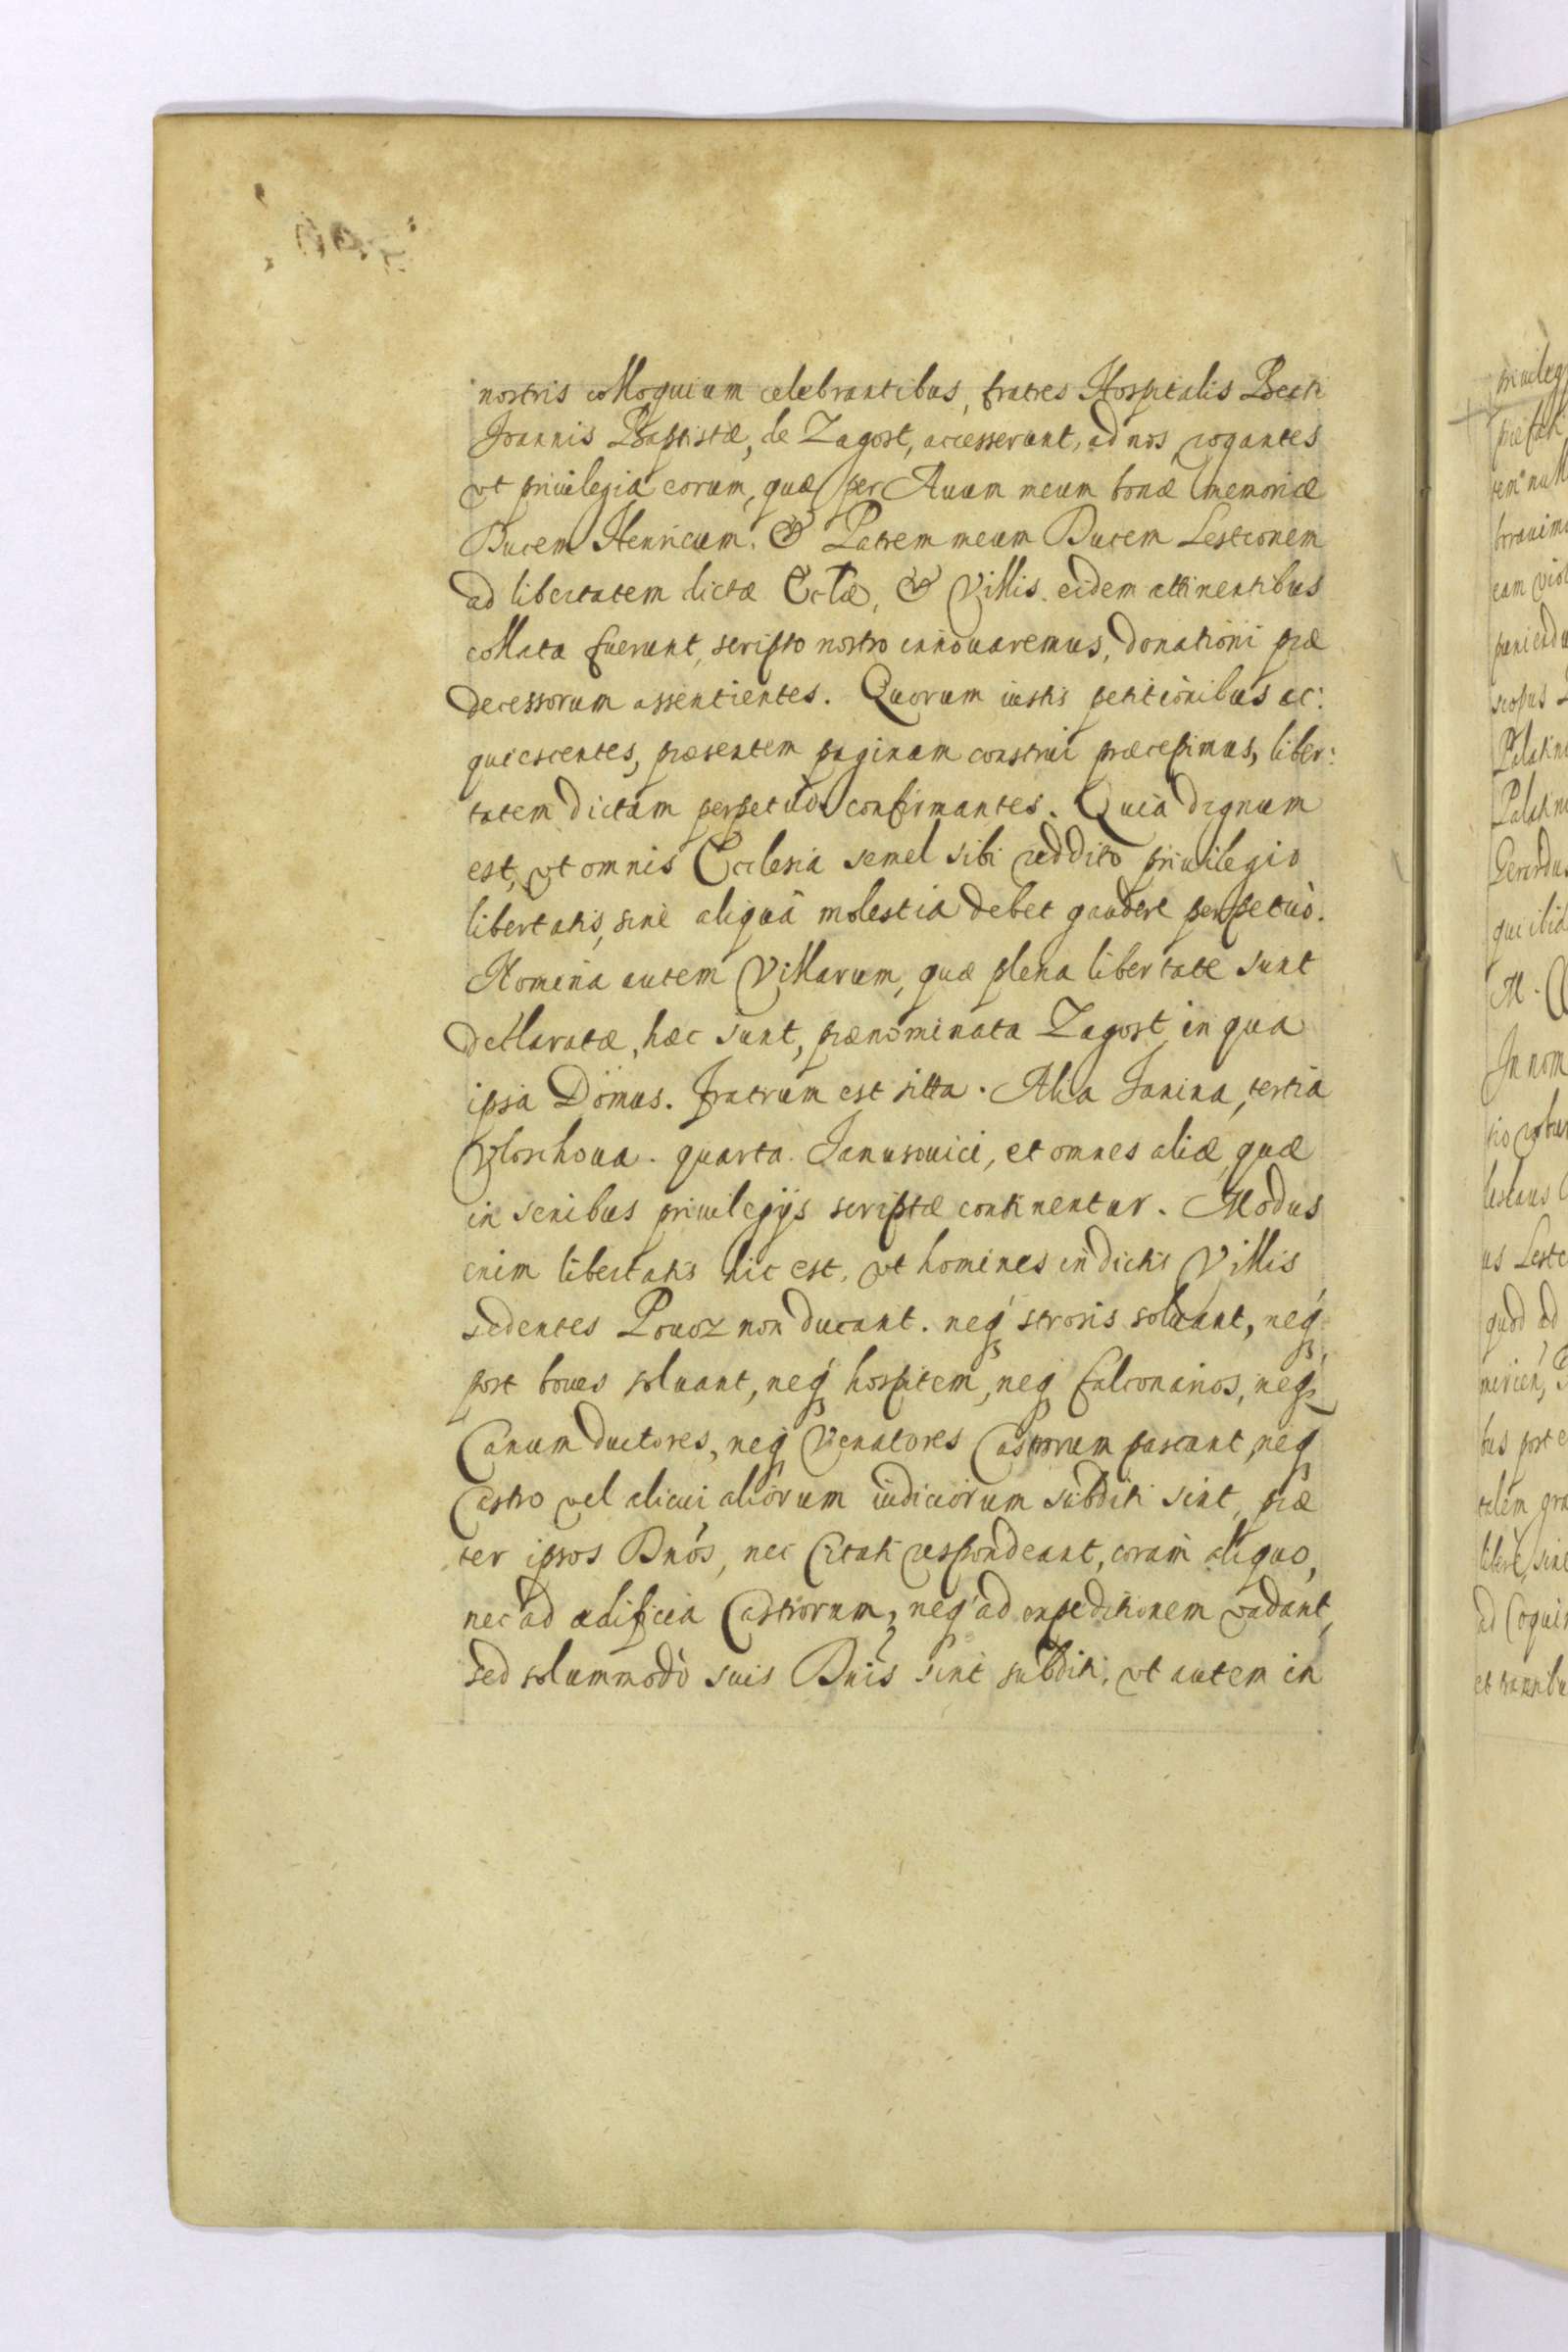 nostris colloquium celebrantibus, fratres Hospitalis Beati
Joannis Baptistæ, de Zagost, accesserunt, ad nos rogantes
vt priuilegia eorum, quæ per Auum meum bonæ memoriæ
Ducem Henricum. & Patrem meum Ducem Lestconem
ad libertatem dictæ Ecclæ, & Villis eidem attinentibus
collata fuerunt, scripto nostro innouaremus, donationi præ
decessorum assentientes. Quorum iustis petitionibus ac:
quiescentes, præsentem paginam construi præcepimus, liber:
tatem dictam perpetuo confirmantes. Quia dignum
est, vt omnis Ecclesia semel sibi reddito priuilegio
libertatis, sine aliquâ molestia debet gaudere perpetuò.
Nomina autem Villarum, quæ plena libertate sunt
declaratæ, hæc sunt, prænominata Zagost, in qua
ipsa Domus. Fratrum est sitta. Alia Janina, tertia
Vloschoua. quarta Janusouici, et omnes aliæ quæ
in senibus priuilegijs scriptæ continentur. Modus
enim libertatis hic est, vt homines in dictis Villis
sedentes Pouoz non ducant. neq strosis soluant, neq
post boues soluant, neq hospitem, neq falconarios, neq
Canum ductores, neq Venatores Castorum pascant, neq
Castro vel alicui aliorum iudiciorum subditi sint, præ
ter ipsos Dnós, nec Citati respondeant, coram aliquo,
nec ad ædificia Castrorum, neq ad expeditionem vadant,
sed solummodò suis Dnis sint subditi, vt autem in